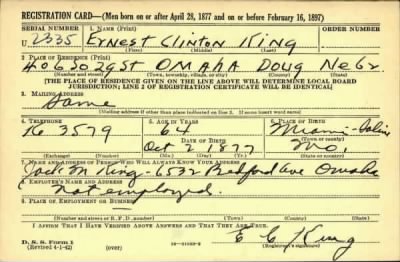 REGISTRATION CARD—(Men born on or after April 28, 1877 and on or before February 16, 1897)
SERIAL NUMBER 1. NAME (Print) ORDER NUMBER
U 2335 Ernest Clinton King
(First) (Middle) (Last)
2. PLACE OF RESIDENCE (Print)
OMAHA Doug Nebr.
(Number and street) (Town, township, village, or city) (County) (State)
[THE PLACE OF RESIDENCE GIVEN ON THE LINE ABOVE WILL DETERMINE LOCAL BOARD
JURISDICTION; LINE 2 OF REGISTRATION CERTIFICATE WILL BE IDENTICAL]
3. MAILING ADDRESS
Same
[Mailing address if other than place indicated on line 2. If same insert word same]
4. TELEPHONE 5. AGE IN YEARS 6. PLACE OF BIRTH
3579 64 Miami-
DATE OF BIRTH (Town or county)
Oct 2 1877 Mo.
(Exchange) (Number) (Mo.) (Day) (Yr.) (State or country)
7. NAME AND ADDRESS OF PERSON WHO WILL ALWAYS KNOW YOUR ADDRESS
Jack M King-6532 Bedford Ave Omaha
8. EMPLOYER'S NAME AND ADDRESS
Not employed.
9. PLACE OF EMPLOYMENT OR BUSINESS
(Number and street or R. F. D. number) (Town) (County) (State)
I AFFIRM THAT I HAVE VERIFIED ABOVE ANSWERS AND THAT THEY ARE TRUE.
D. S. S. Form 1 E C King
(Revised 4-1-42) (over) (Registrant's signature)